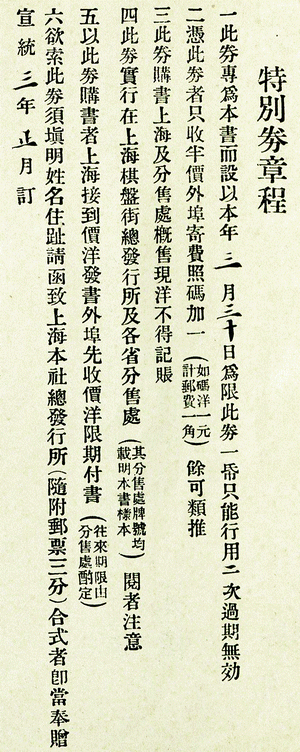 特別券章程
一此券專爲本書而設以本年三月三十日爲限此券一帋只能行用二次過期無効
二憑此券者只收半價外埠寄費照碼加一（如碼洋一元計郵費一角）餘可類推
三此券購書上海及分售處槪售現洋不得記賬
四此券實行在上海棋盤街總發行所及各省分售處（其分售處牌號均載明本書樣本）閱者注意
五以此券購書者上海接到價洋發書外埠先收價洋限期付書（往來期限由分售處酌定）
六欲索此券須塡明姓名住趾請函致上海本社總發行所（隨附郵票三分）合式者卽當奉贈
宣統三年正月訂